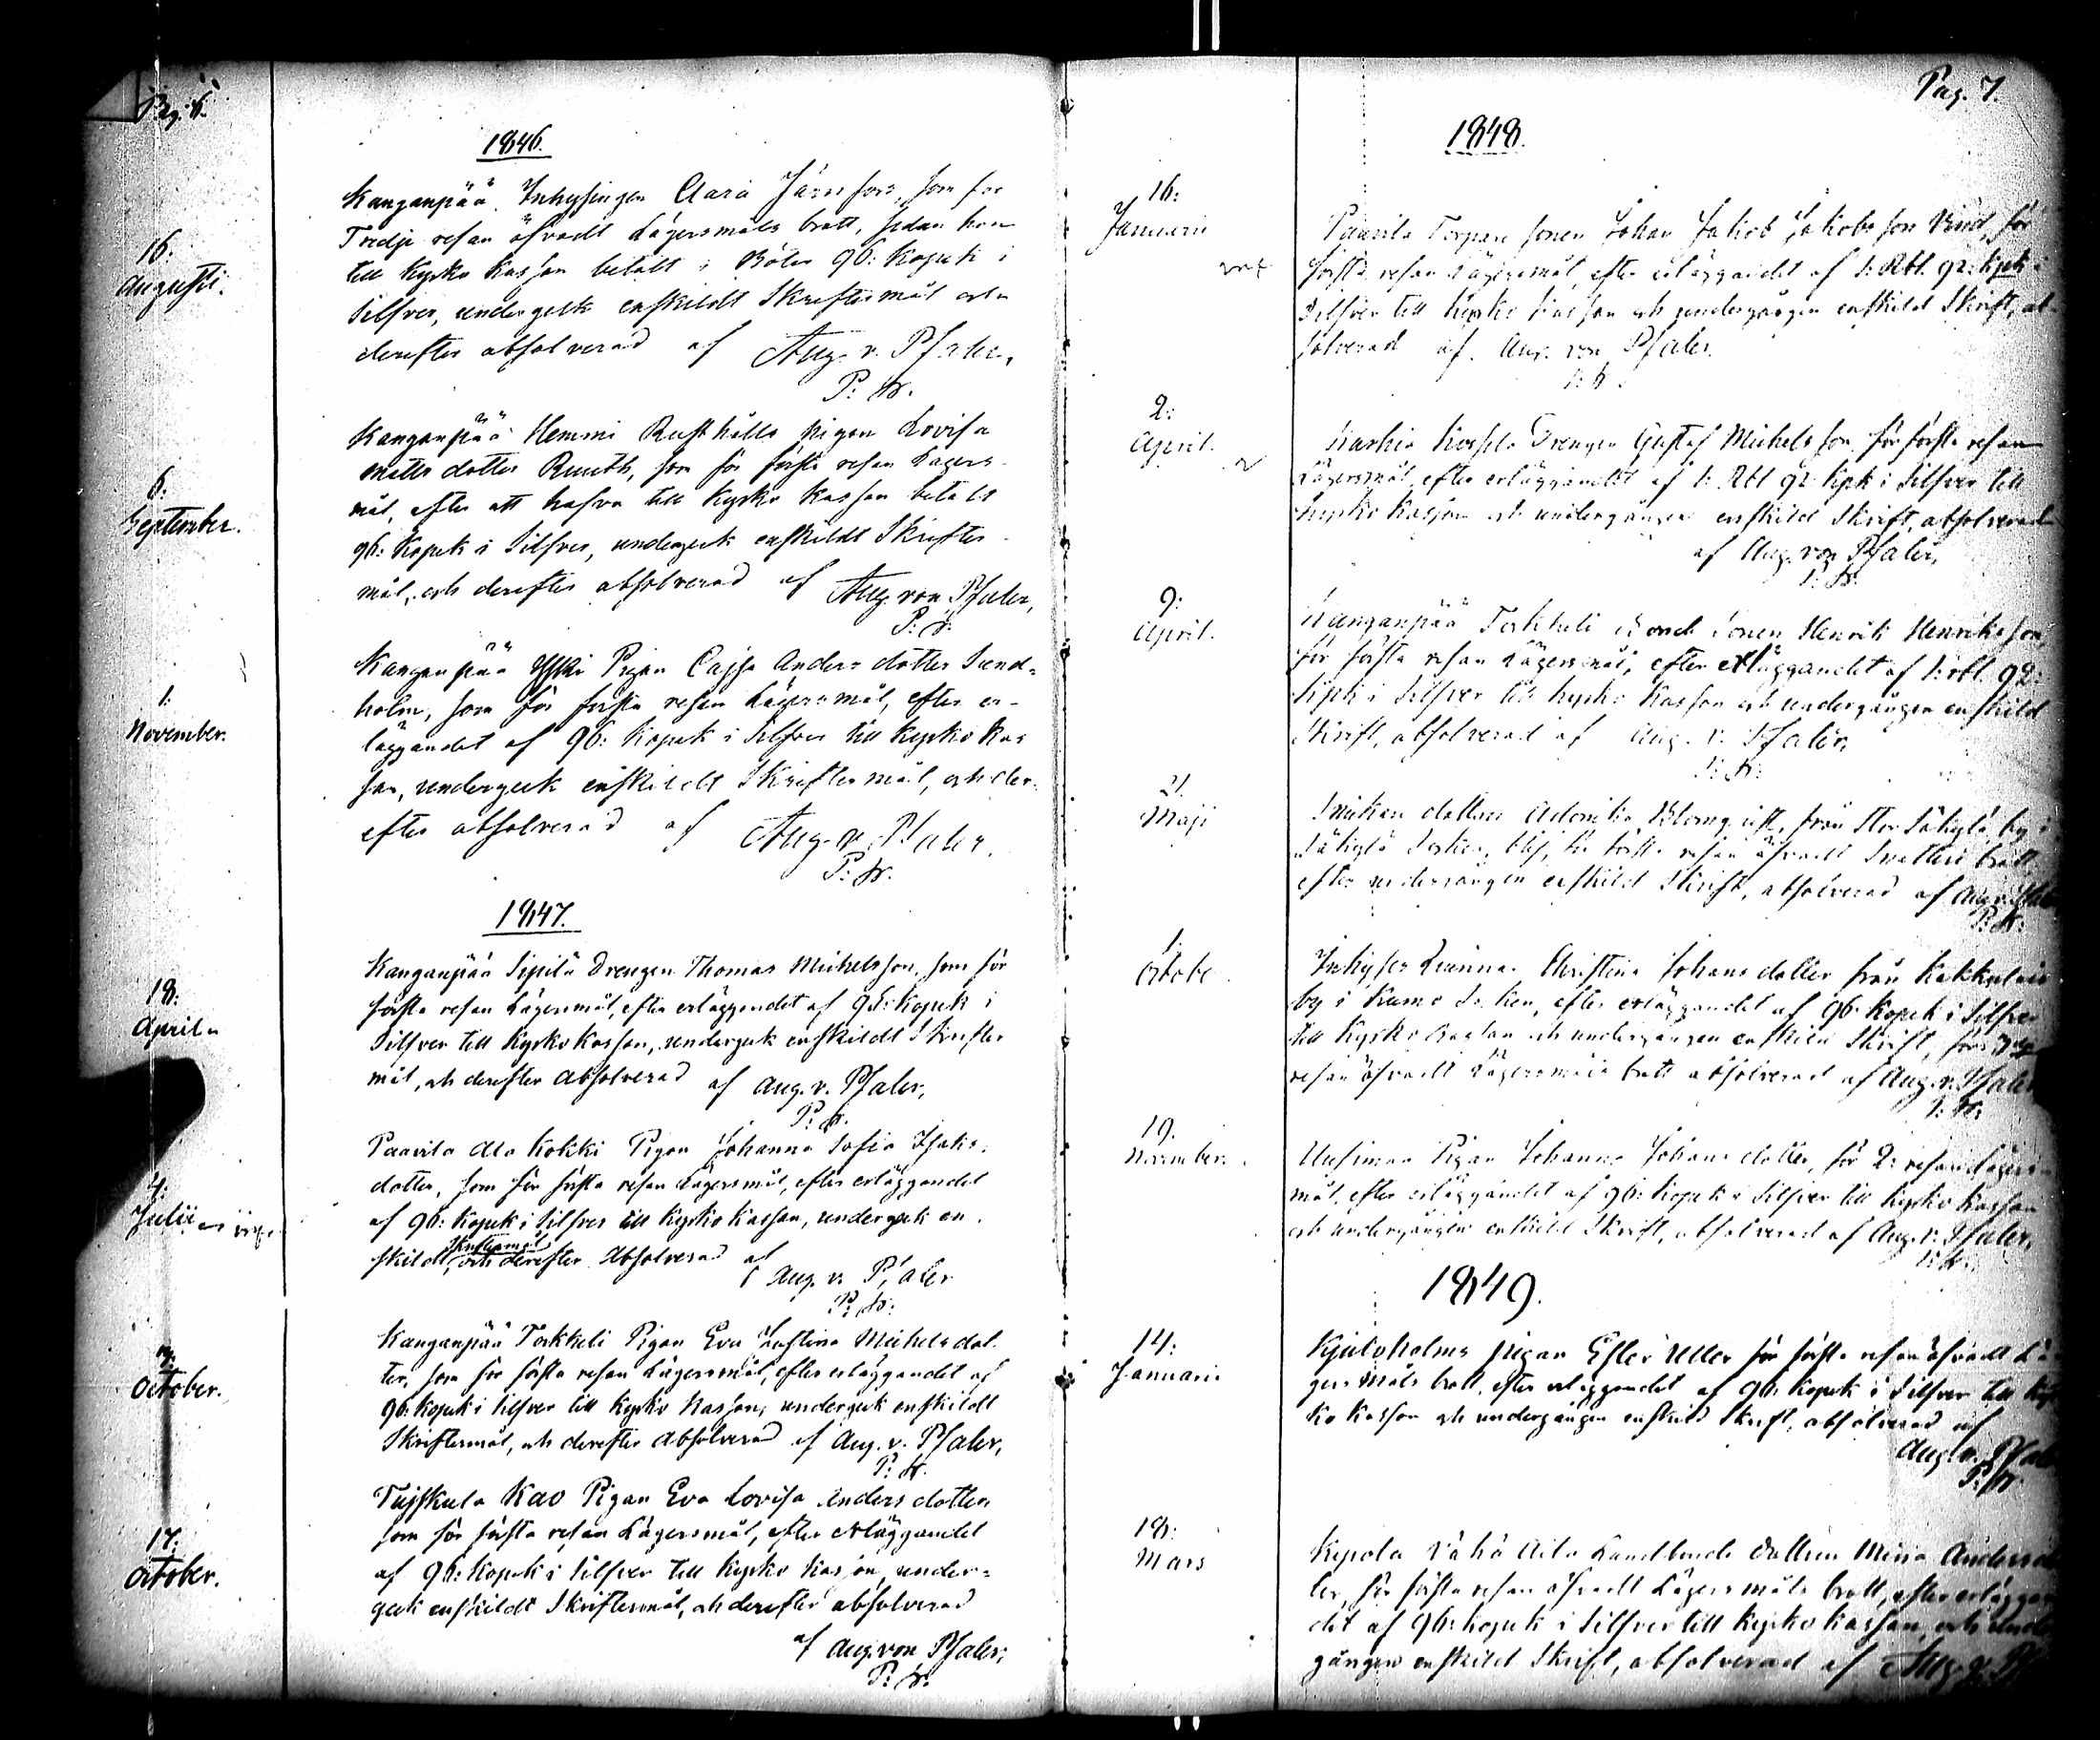 Pag. 6.
1846.
16:
Augusti.
Kanganpää Inhysingen Clara Järnfors, som för
Tredje resan öfvadt Lägersmåls brott, sedan hon
till Kyrko Kassan betalt i Böter 96: Kopek i
Silfver, undergick enskildt Skriftermål och
derefter absolverad af Aug. v. Pfaler,
P: Hr.
6:
September.
Kanganpää Hemmi Rusthålls pigan Lovisa
Matts dotter Ruuth, som för första resan Lägers-
mål, efter att hafva till Kyrko Kassan betalt
96: Kopek i Silfver, undergick enskildt Skrifter-
mål, och derefter absolverad af Aug. von Pfaler,
P: Hr.
1:
November.
Kanganpää Pigan Cajsa Anders dotter Sund-
holm, som för första resan Lägersmål, efter er-
läggandet af 96: Kopek i Silfver till Kyrko Kas
san, undergick enskildt Skriftermål, och der-
efter absolverad af Aug. v. Pfaler.
P: Hr.
1847.
18:
Aprill
Kanganpää Sipilä Drengen Thomas Michelsson, som för
första resan Lägersmål, efter erläggandet af 96: Kopek i
Silfver till Kyrko Kassan, undergick enskildt Skrifter
mål, och derefter Absolverad af Aug. v. Pfaler,
P: Hr.
4:
Julii
Paavila Ala Kokki Pigan Johanna Sofia Isaks-
dotter, som för första resan Lägersmål, efter erläggandet
af 96: Kopek i Silfver till Kyrko Kassan, undergick en-
skildt Skriftermål, och derefter Absolverad af Aug. v. Pfaler
P: Hr.
October.
Kanganpää Torkkeli Pigan Eva Justina Michels dot-
ter, som för första resan Lägersmål, efter erläggandet af
96: Kopek i Silfver till Kyrko Kassan, undergick enskildt
Skriftermål, och derefter Absolverad af Aug. v. Pfaler,
P: Hr.
17:
October.
Tuiskula Kao Pigan Eva Lovisa Anders dotter,
som för första resan Lägersmål, efter erläggandet
af 96: Kopek i Silfver till Kyrko Kassan, under-
gick enskildt Skriftermål, och derefter absolverad
af Aug. von Pfaler;
P: Hr.
Pag. 7.
1848.
16:
Januarii
Paavila Torpare sonen Johan Jakob Jakobsson Vind, för
första resan Lägersmål, efter erläggandet af 1: Rbl. 92: Kpk i
Silfver till Kyrko Kassan och undergången enskild Skrift, ab-
solverad af Aug. von Pfaler.
P: Hr.
2:
April.
Karhia Drengen Gustaf Michelsson för första resan
Lägersmål, efter erläggandet af 1: Rbl 92: Kpk i Silfver till
Kyrko Kassan och undergången enskild Skrift, absolverad
af Aug. von Pfaler,
P: Hr.
9:
April.
Kanganpää Torkkeli Bonde Sonen Henrik Henriksson,
för första resan Lägersmål, efter erläggandet af 1: rbl. 92:
Kpk i Silfver till Kyrko Kassan och undergången enskild
Skrift, absolverad af Aug. v. Pfaler,
P: Hr.
21.
Maji
dottren Blomqvist, från Stor Säkylä by i
Säkylä Socken, blef, för första resan öfvadt Snatteri brott
efter undergången enskild Skrift, absolverad af Aug. v. Pfaler
P: Hr.
1:
Octobe
Inhyses Qvinnan Christina Johans dotter från Kakkulais
by i Kumo Socken, efter erläggandet af 96: Kopek i Silfver
till Kyrko Kassan och undergången enskild Skrift, för
resan öfvadt Lägersmåls brott absolverad af Aug. v. Pfaler
P: Hr.
19.
November.
Uusimaa Pigan Johanna Johans dotter, för 2: resan Lägers-
mål, efter erläggandet af 96: Kopek i Silfver till Kyrko Kassan
och undergången enskild Skrift, absolverad af Aug. v. Pfaler,
P: Hr.
1849.
14:
Januarii
Kjuloholms pigan Esler Uller för första resan öfvadt Lä-
gersmåls brott, efter erläggandet af 96: Kopek i Silfver till Kyr
ko Kassan och undergången enskild Skrift, absolverad af
Aug. v. Pfaler
P: Hr.
18:
Mars
Kepola Vähä Aila Landbonde dottren Mina Andersdot
ter, för första resan öfvadt Lägersmåls brott, efter erläggan
det af 96: Kopek i Silfver till Kyrko Kassan, och under
gången enskild Skrift, absolverad af Aug. v. Pf